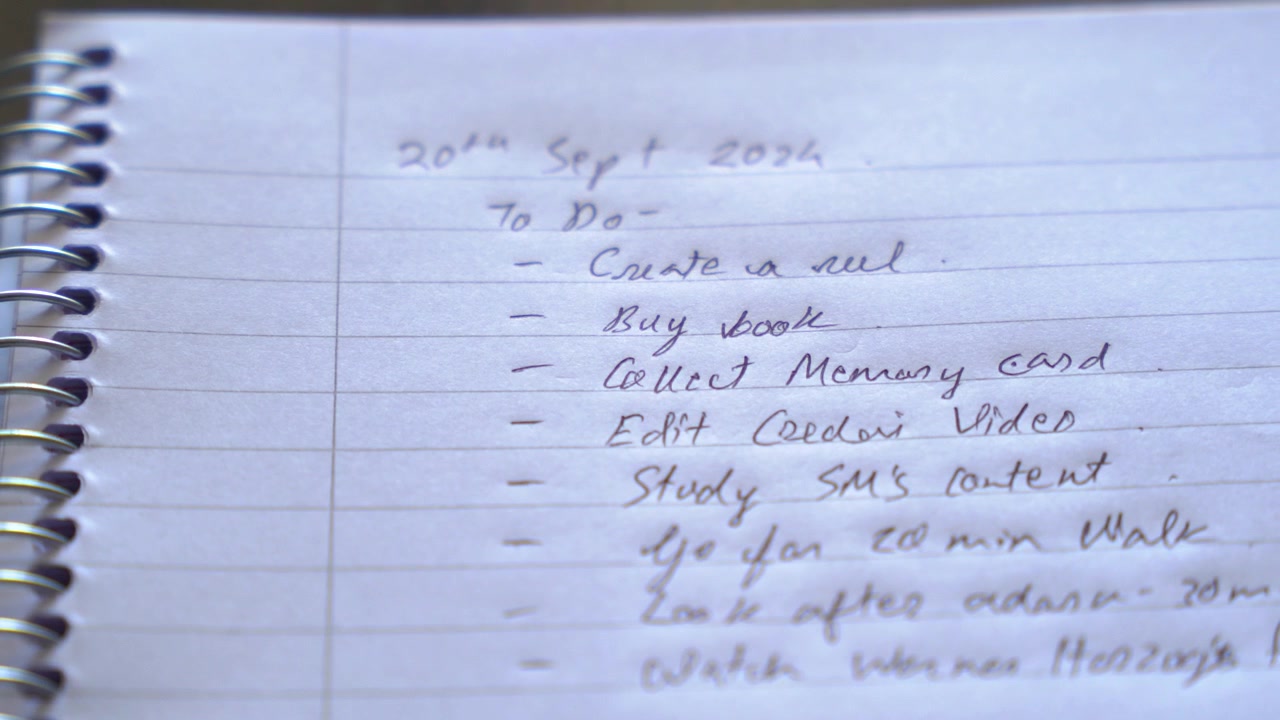 20th Sept 2024
To Do -
- Create a reel.
- Buy book.
- Collect Memory card.
- Edit Video.
- Study SM's content.
- Go for 20 min Walk.
- Look after - 30m
- Watch Werner Herzog's